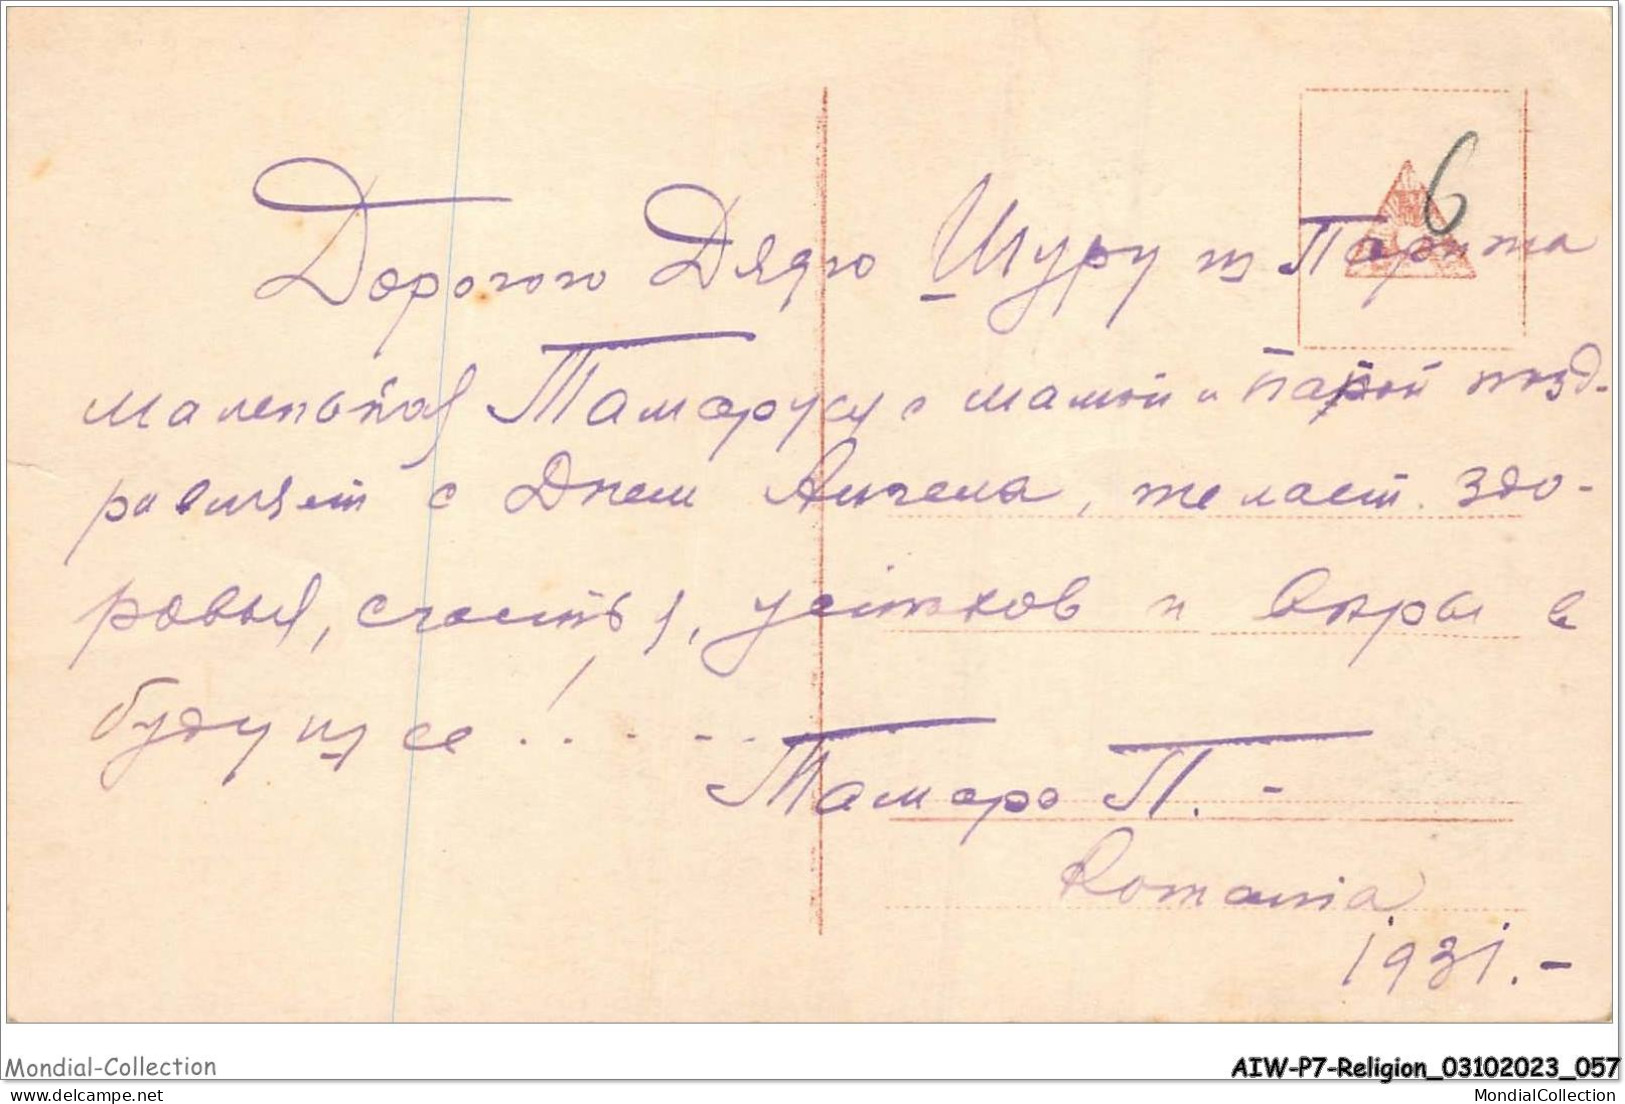 6
Дорогого Дядю Шуру из Парижа
маленькая Тамаруся с мамой и папой позд-
равляет с Днем Ангела, желает здо-
ровья, счастья, успехов и виры в
будущее! . . - - . .
Тамара П. -
Romania
1931.-
Mondial-Collection
AIW-P7-Religion_03102023_057
MondialCollection